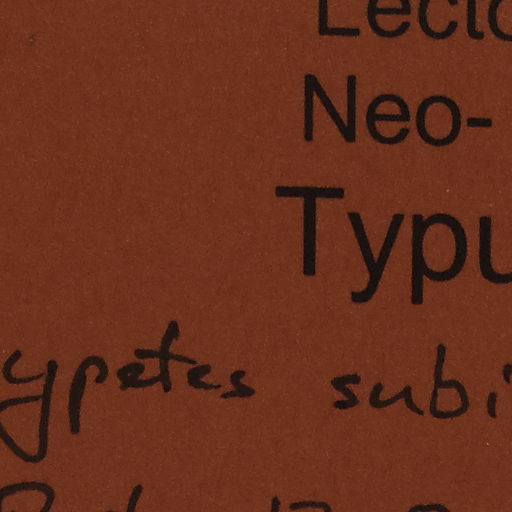 Lecto
Neo-
Typu
ypetes subi